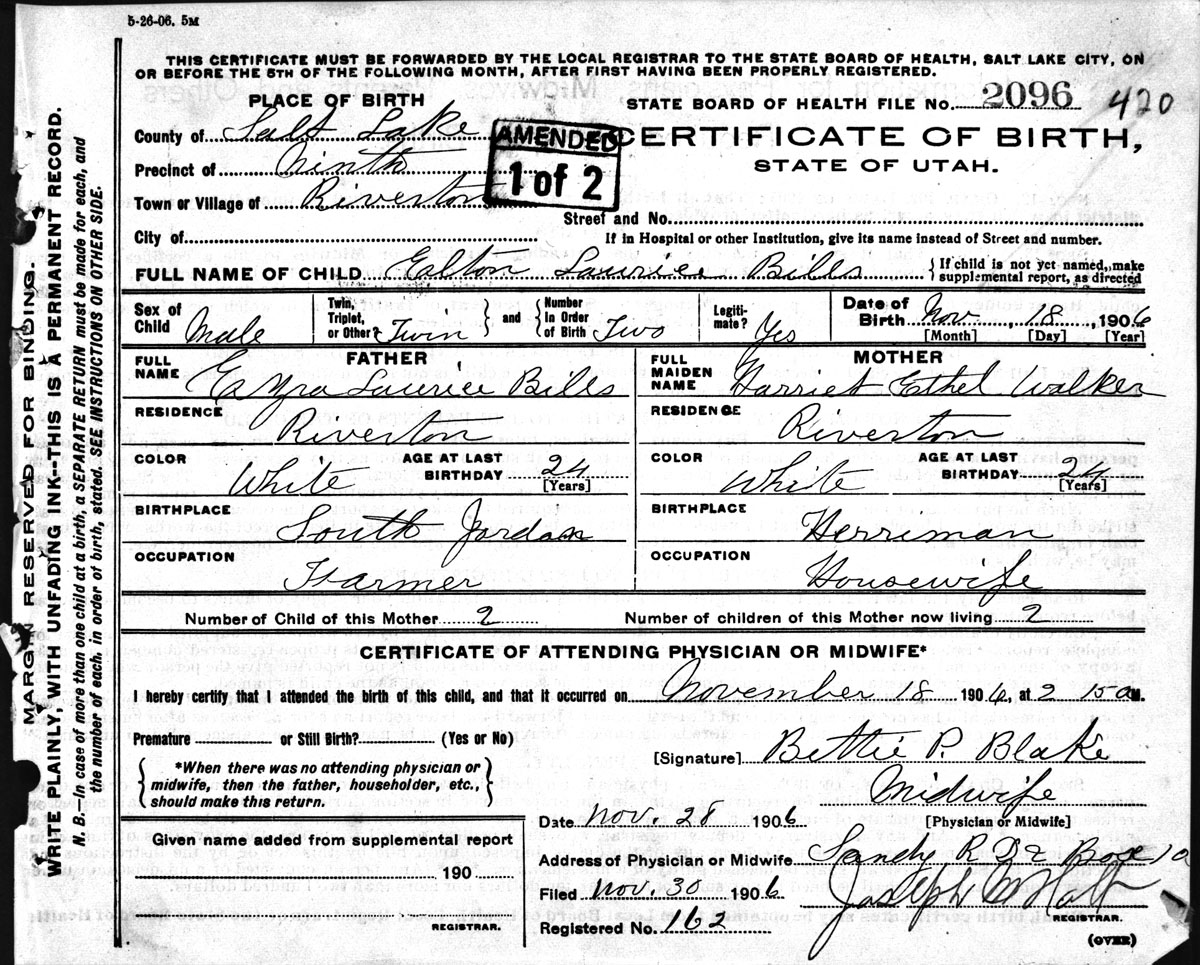 5-26-06. 5M
THIS CERTIFICATE MUST BE FORWARDED BY THE LOCAL REGISTRAR TO THE STATE BOARD OF HEALTH, SALT LAKE CITY, ON
OR BEFORE THE 5TH OF THE FOLLOWING MONTH, AFTER FIRST HAVING BEEN PROPERLY REGISTERED.
MARGIN RESERVED FOR BINDING
WRITE PLAINLY, WITH UNFADING INK--THIS IS A PERMANENT RECORD.
N. B.—In case of more than one child at a birth, a SEPARATE RETURN must be made for each, and
the number of each, in order of birth, stated. SEE INSTRUCTIONS ON OTHER SIDE.
PLACE OF BIRTH
County of Salt Lake
Precinct of Ninth
Town or Village of Riverton
City of
AMENDED
1 of 2
STATE BOARD OF HEALTH FILE No. 2096 420
CERTIFICATE OF BIRTH,
STATE OF UTAH.
Street and No.
If in Hospital or other Institution, give its name instead of Street and number.
FULL NAME OF CHILD Ealton Laurice Bills { If child is not yet named, make
supplemental report, as directed
Sex of Child Male Twin, Triplet, or Other? Twin } and { Number in Order of Birth Two Legiti-mate? Yes Date of Birth Nov. 18, 1906
[Month] [Day] [Year]
FATHER
FULL NAME Ezra Laurice Bills
RESIDENCE Riverton
COLOR White AGE AT LAST BIRTHDAY 24
[Years]
BIRTHPLACE South Jordan
OCCUPATION Farmer
MOTHER
FULL MAIDEN NAME Harriet Ethel Walker
RESIDENCE Riverton
COLOR White AGE AT LAST BIRTHDAY 24
[Years]
BIRTHPLACE Herriman
OCCUPATION Housewife
Number of Child of this Mother 2 Number of children of this Mother now living 2
CERTIFICATE OF ATTENDING PHYSICIAN OR MIDWIFE*
I hereby certify that I attended the birth of this child, and that it occurred on November 18 1906, at 2 15 a M.
Premature or Still Birth? (Yes or No)
[Signature] Bettie P. Blake
{ *When there was no attending physician or
midwife, then the father, householder, etc.,
should make this return. }
Midwife
[Physician or Midwife]
Date Nov. 28 1906
Given name added from supplemental report
190
REGISTRAR.
Address of Physician or Midwife Sandy R D 2 Box 10
Filed Nov. 30 1906 Joseph
REGISTRAR.
Registered No. 162
(OVER)